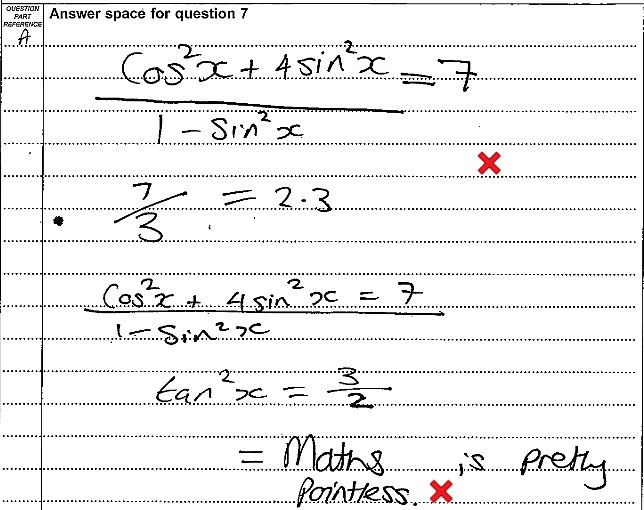 QUESTION PART REFERENCE
Answer space for question 7
A
Cos²x + 4 sin²x = 7
1 - Sin²x
7/3 = 2.3
Cos²x + 4 sin²x = 7
1 - Sin²x
tan²x = 3/2
= Maths is pretty
pointless.